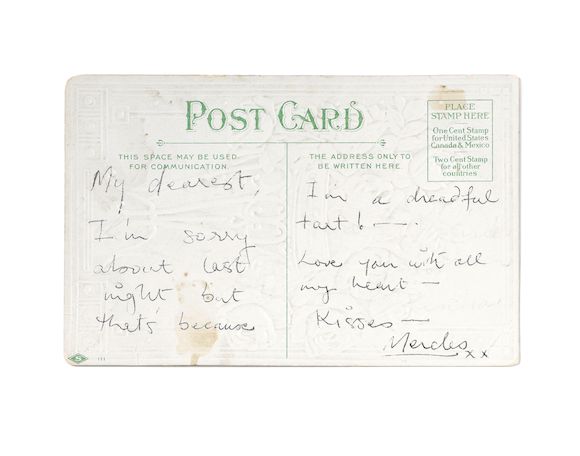 POST CARD
PLACE
STAMP HERE
One Cent Stamp
for United States
Canada & Mexico
Two Cent Stamp
for all other
countries
THIS SPACE MAY BE USED
FOR COMMUNICATION.
THE ADDRESS ONLY TO
BE WRITTEN HERE
My dearest,
I'm sorry
about last
night but
thats' because
I'm a dreadful
tart! —.
Love you with all
my heart —
Kisses —
xx
S
111